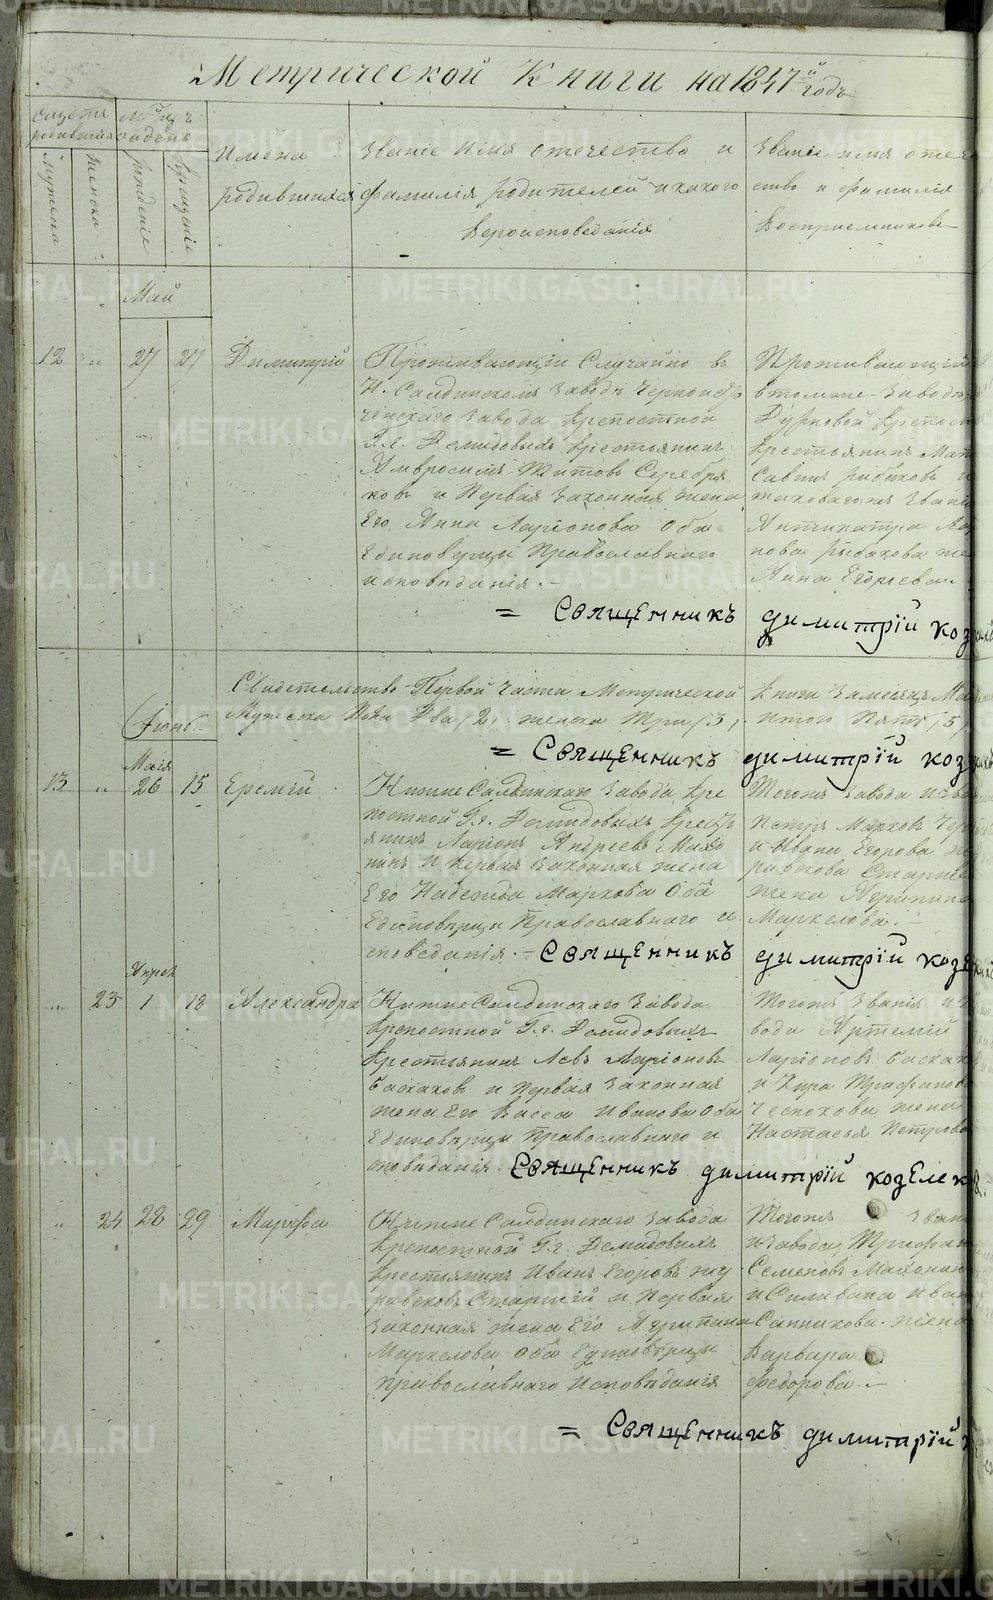 Метрической Книги на 1847й годъ
Счетъ родившихся
Мцъ и день
мужска
женска
рожденіе
крещеніе
Имена родившихся
Званіе имя отечество и
фамилія родителей и какого
вероисповеданія
Званіе имя отече
ство и фамилія
Воспріемниковъ
Май
12 " 27 27 Димитрій
Проживающіи Случайно въ
Н. Салдинскомъ Заводѣ Черноис
ченскаго Завода крепостной
Г.г. Демидовыхъ крестьянинъ
Амвросимъ Титовъ Серебря
ковъ и Первая Законная жена
Его Анна Ларіонова Оба
Единоверцы Православнаго
исповѣданія.
Проживающій
втомже Заводѣ
крестьянинъ
Савинъ рыбаковъ и
таковагожъ Званія
Антипатра
нова рыбакова же
Анна Егорьева
= Священникъ димитрій коз
Свидетельство Первой Части Метрической Книги За месяцъ Ма
Мужеска Пола Два /2/ женска Три /3/ итого Пять /5/
= Священникъ димитрій коз
Іюнь
Маія
13 " 26 15 Еремій
Нижне Салдинскаго Завода кре
постной Г.г. Демидовыхъ крестъ
янинъ Ларіонъ Андреевъ Махо
нинъ и Первая Законная жена
Его Надежда Маркова Оба
Единоверцы Православнаго и
споведанія. – Священникъ димитрій козе
Тогожъ Завода
Петръ Марковъ
и Ивана Егорова
равкова Старше
жена Агрипина
Маркелова. –
Апрель
" 23 1 18 Александра
Нижне Салдинскаго Завода
крепостной Г.г. Демидовыхъ
крестьянинъ Левъ Ларіоновъ
Баскаковъ и Первая Законная
жена Его Васса Иванова Оба
Единоверцы Православнаго и
споведанія. Священникъ димитрій козелек
Тогожъ Званія и
вода Артемій
Ларіоновъ Баскак
и Трифанов
Чеснокова жена
Настасья Петрова
" 24 28 29 Марфа
Нижне Салдинскаго Завода
крепостной Г.г. Демидовыхъ
крестьянинъ Иванъ Егоровъ жу
равковъ Старшій и Первая
Законная жена Его Агрипина
Маркелова Оба Единоверцы
Православнаго Исповѣданія
Тогожъ Зван
и Завода, Трифан
Семеновъ Махонин
и Силивана Иван
Санникова жена
Варвара
Федорова. –
= Священникъ димитрій
METRIKI.GASO-URAL.RU